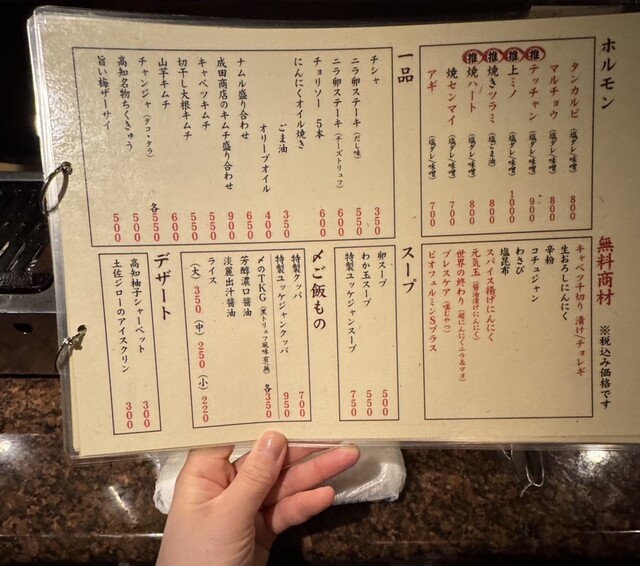 ホルモン
タンカルビ(塩タレ味噌)800
マルチョウ(塩タレ味噌)800
推 テッチャン(塩タレ味噌)900
推 上ミノ(塩タレ味噌)1000
推 焼きツラミ(塩ごま油)800
推 焼ハート(塩タレ味噌)800
焼センマイ(塩タレ味噌)700
アギ(塩タレ味噌)700
無料商材 ※税込み価格です
キャベツ千切り 漬け(チョレギ
生おろしにんにく
辛粉
コチュジャン
わさび
塩昆布
スパイス揚げにんにく
元気玉(醤油漬けにんにく)
世界の終わり(超にんにくニラ&マヨ)
ブレスケア(噛むやつ)
ビオフェルミンSプラス
一品
チシャ 350
ニラ卵ステーキ(だし味)550
ニラ卵ステーキ(チーズトリュフ)600
チョリソー 5本 600
にんにくオイル焼き
ごま油 350
オリーブオイル 400
ナムル盛り合わせ 650
成田商店のキムチ盛り合わせ 900
キャベツキムチ 550
切干し大根キムチ 550
山芋キムチ 600
チャンジャ(タコ・タラ)各550
高知名物ちくきゅう 500
旨い梅ザーサイ 500
スープ
卵スープ 500
わか玉スープ 550
特製ユッケジャンスープ 750
〆ご飯もの
特製クッパ 700
特製ユッケジャンクッパ 950
〆のTKG(黒トリュフ風味有無)各350
芳醇濃口醤油
淡麗出汁醤油
ライス
(大)350(中)250(小)220
デザート
高知柚子シャーベット 300
土佐ジローのアイスクリン 300